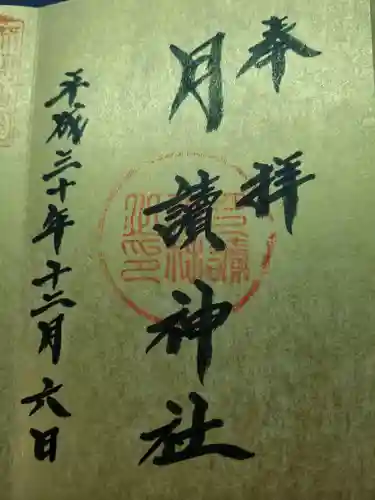 奉拝
月讀神社
平成三十年十二月六日